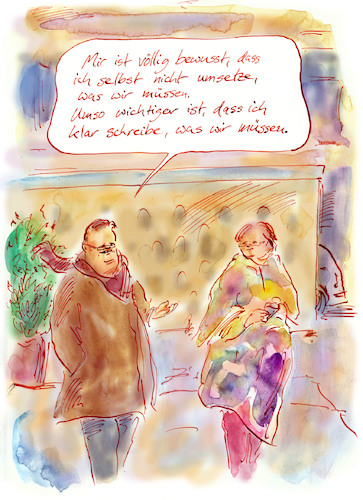 Mir ist völlig bewusst, dass
ich selbst nicht umsetze,
was wir müssen.
Umso wichtiger ist, dass ich
klar schreibe, was wir müssen.